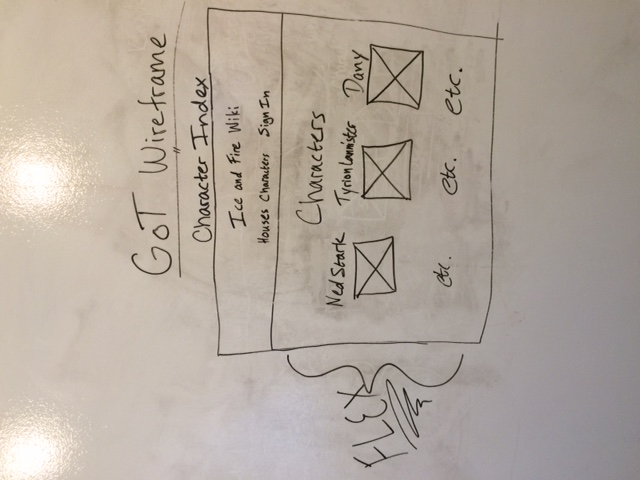 GoT Wireframe
Character Index
Ice and Fire Wiki
Houses Characters Sign In
Characters
Ned Stark Tyrion Lannister Dany
etc. etc. etc.
FLEX